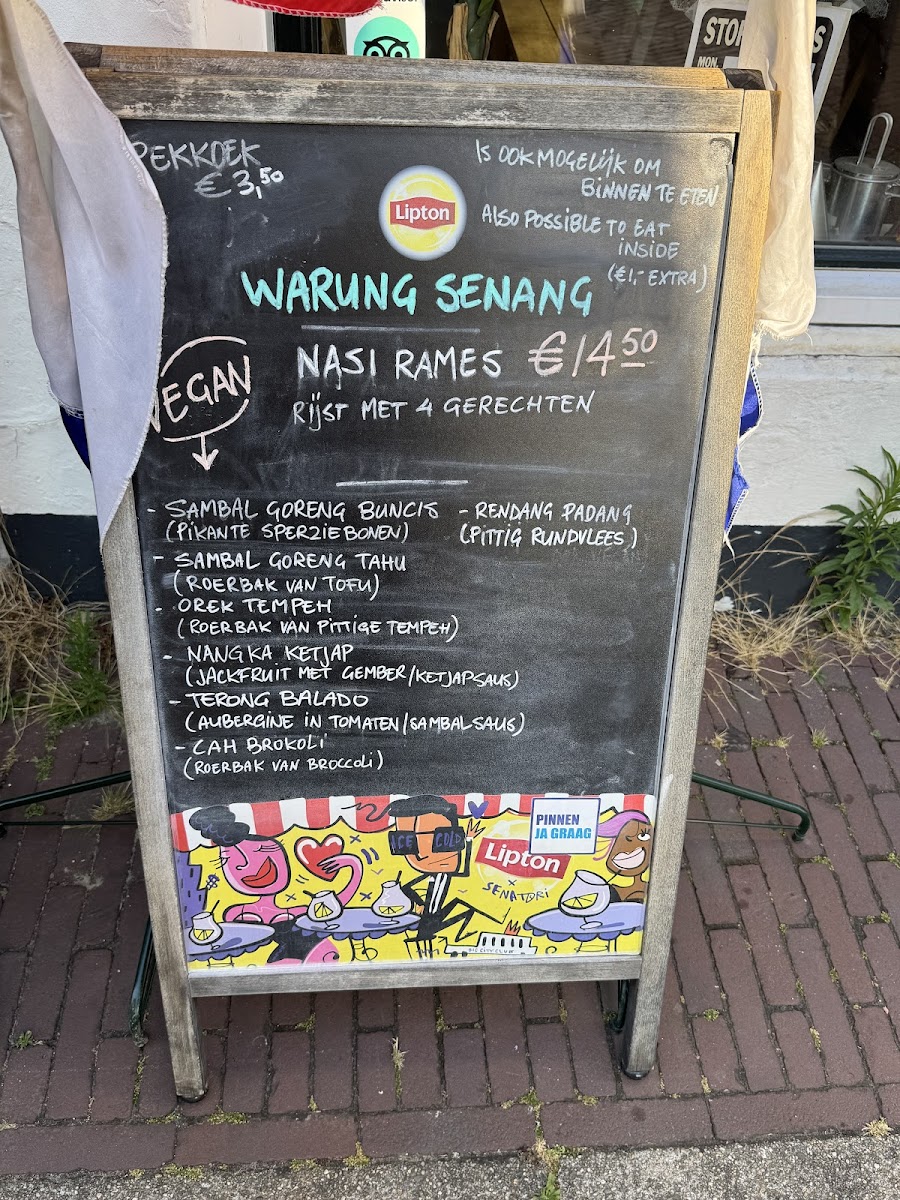 PEKKOEK
€ 3,50
IS OOK MOGELIJK OM
BINNEN TE ETEN
ALSO POSSIBLE TO EAT
INSIDE
(€1,- EXTRA)
Lipton
WARUNG SENANG
NASI RAMES €14 50
RIJST MET 4 GERECHTEN
VEGAN
- SAMBAL GORENG BUNCIS
(PIKANTE SPERZIEBONEN)
- SAMBAL GORENG TAHU
(ROERBAK VAN TOFU)
- OREK TEMPEH
(ROERBAK VAN PITTIGE TEMPEH)
- NANGKA KETJAP
(JACKFRUIT MET GEMBER/KETJAPSAUS)
- TERONG BALADO
(AUBERGINE IN TOMATEN/SAMBALSAUS)
- CAH BROKOLI
(ROERBAK VAN BROCCOLI)
- RENDANG PADANG
(PITTIG RUNDVLEES)
PINNEN
JA GRAAG
ICE COLD
Lipton
x
SENATORI
BIG CITY CLUB
MON